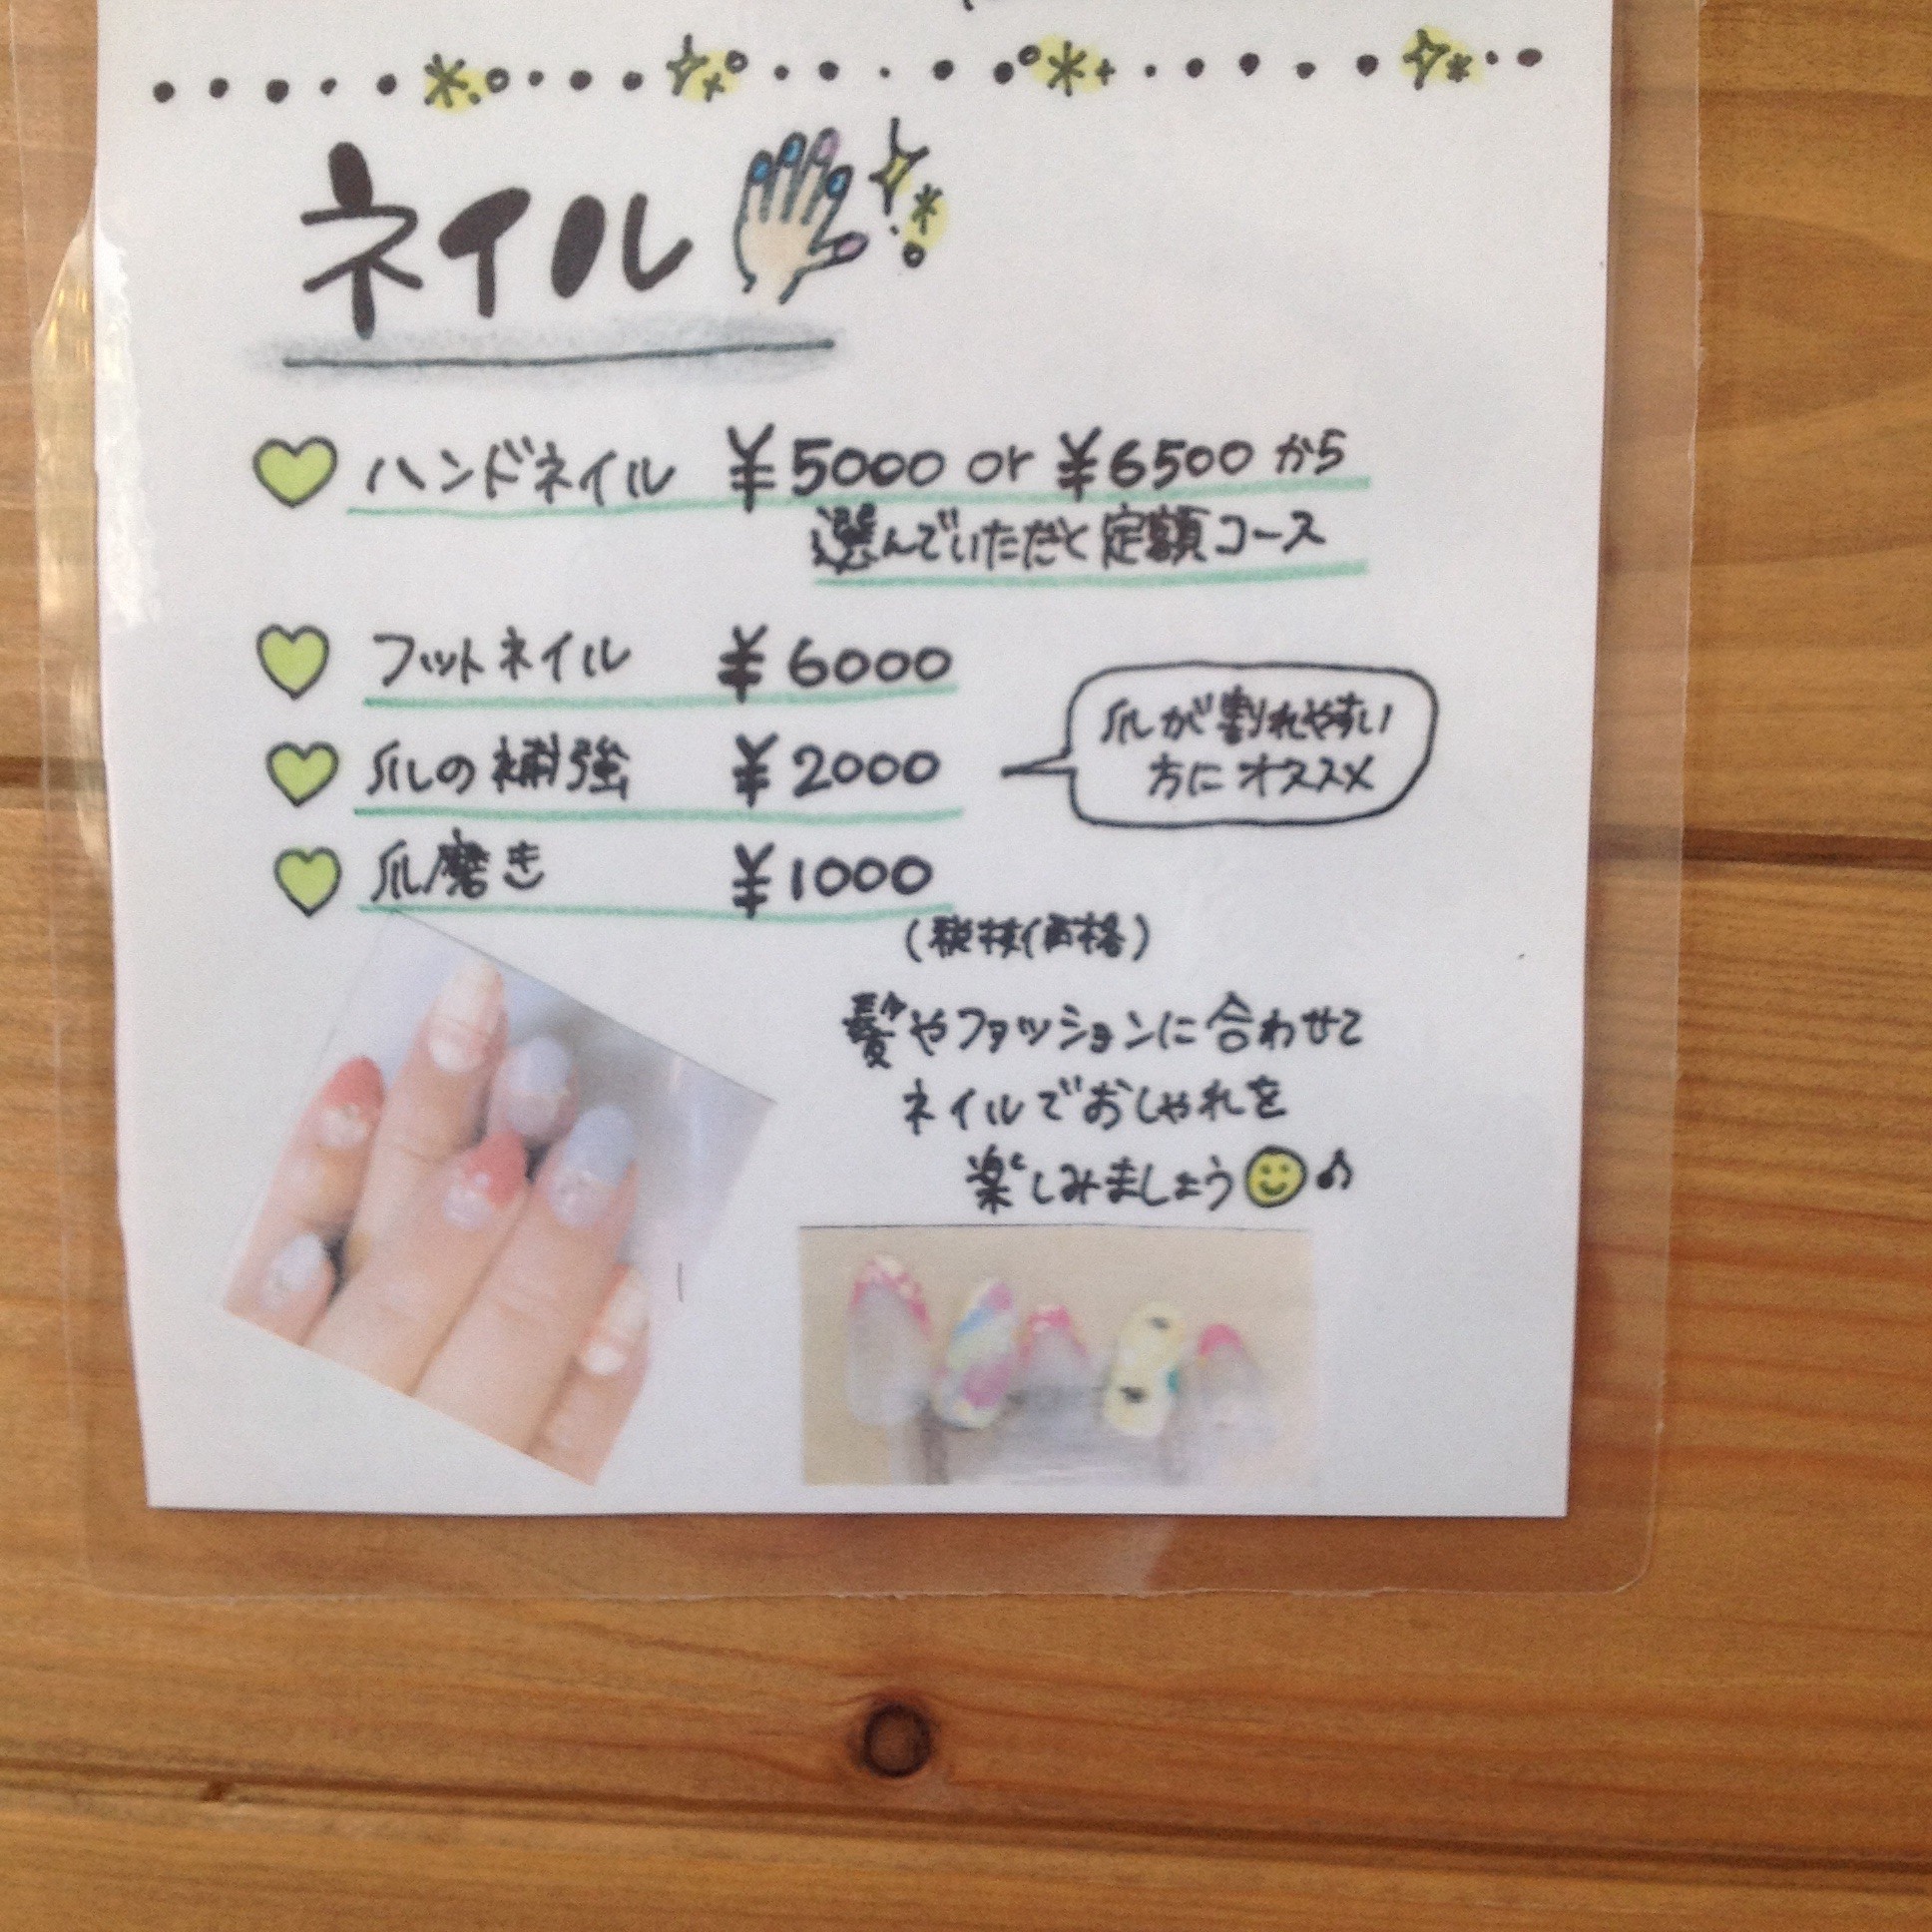 ネイル
ハンドネイル ¥5000 or ¥6500 から
選んでいただく定額コース
フットネイル ¥6000
爪の補強 ¥2000
爪が割れやすい
方にオススメ
爪磨き ¥1000
(税抜価格)
髪やファッションに合わせて
ネイルでおしゃれを
楽しみましょう